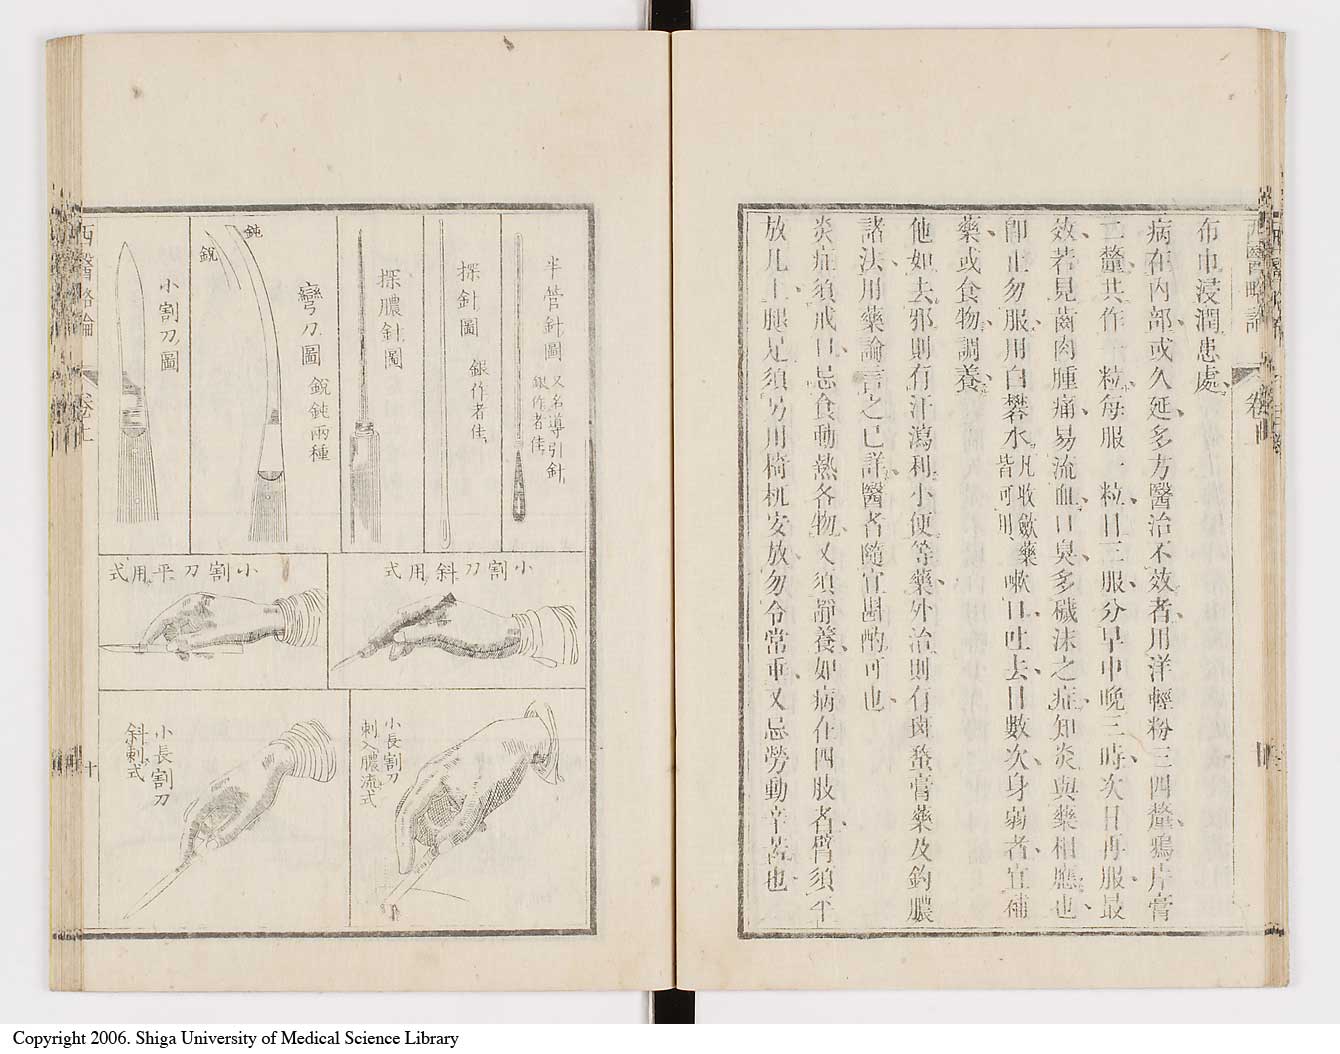 布巾浸潤患處、
病在內部、或久延、多方醫治不效者、用洋輕粉三四釐、鴉片膏
二釐、共作一粒、每服一粒、日三服、分早中晚三時、次日再服、最
效、若見齒肉腫痛、易流血、口臭、多磯沫之症、知炎與藥相應也、
卽止勿服、用白礬水、凡收斂藥、皆可用、嗽口、吐去、日數次、身弱者、宜補
藥、或食物調養、
他如去邪則有汗瀉利小便等藥、外治則有斑蝥膏藥及鈎膿
諸法、用藥論言之已詳、醫者隨宜斟酌可也、
炎症須戒口、忌食動熱各物、又須靜養、如病在四肢者、臂須平
放几上、腿足須另用椅杌安放、勿令常垂、又忌勞動辛苦也、
西醫略論
卷上
半管針圖 又名導引針、銀作者佳、
探針圖 銀作者佳、
探膿針圖
彎刀圖 銳鈍兩種
鈍
銳
小割刀圖
小割刀斜用式
小割刀平用式
小長割刀
刺入膿流式
小長割刀
斜刺式
西醫略論
卷上
十
Copyright 2006. Shiga University of Medical Science Library